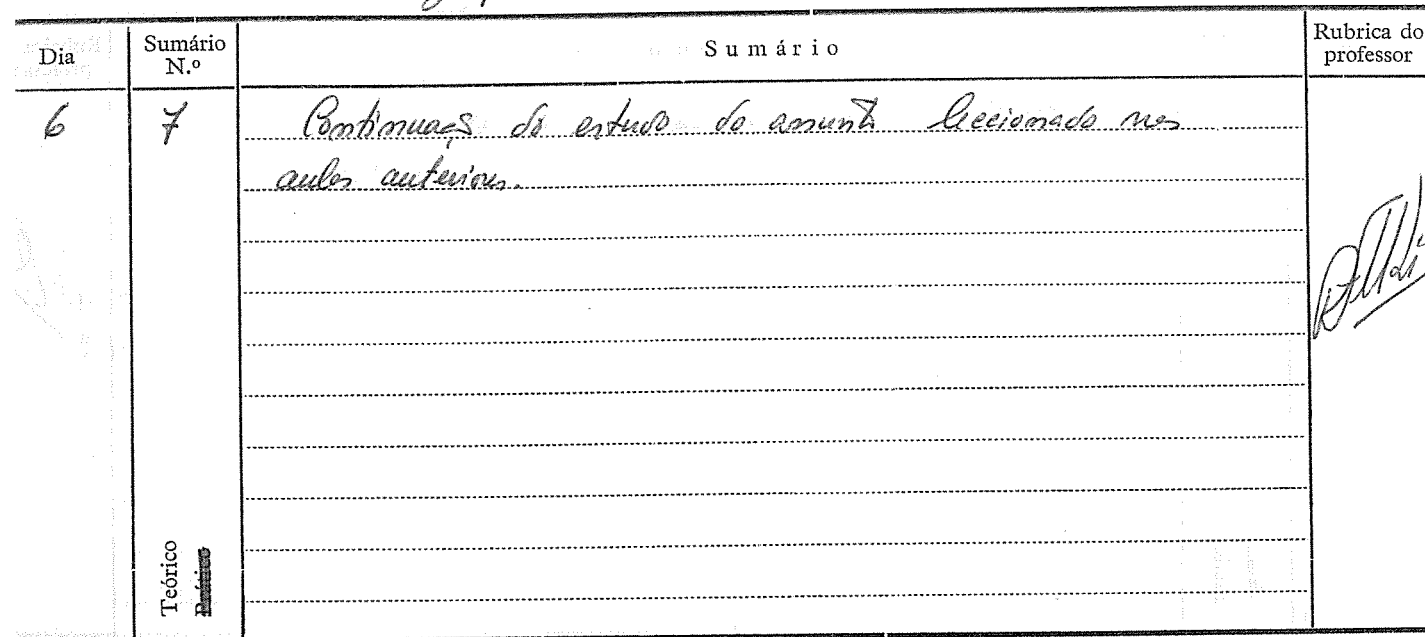 Dia
Sumário N.º
Sumário
Rubrica do professor
6
7
Continuação do estudo do assunto leccionado nas
aulas anteriores.
Teórico
Prático